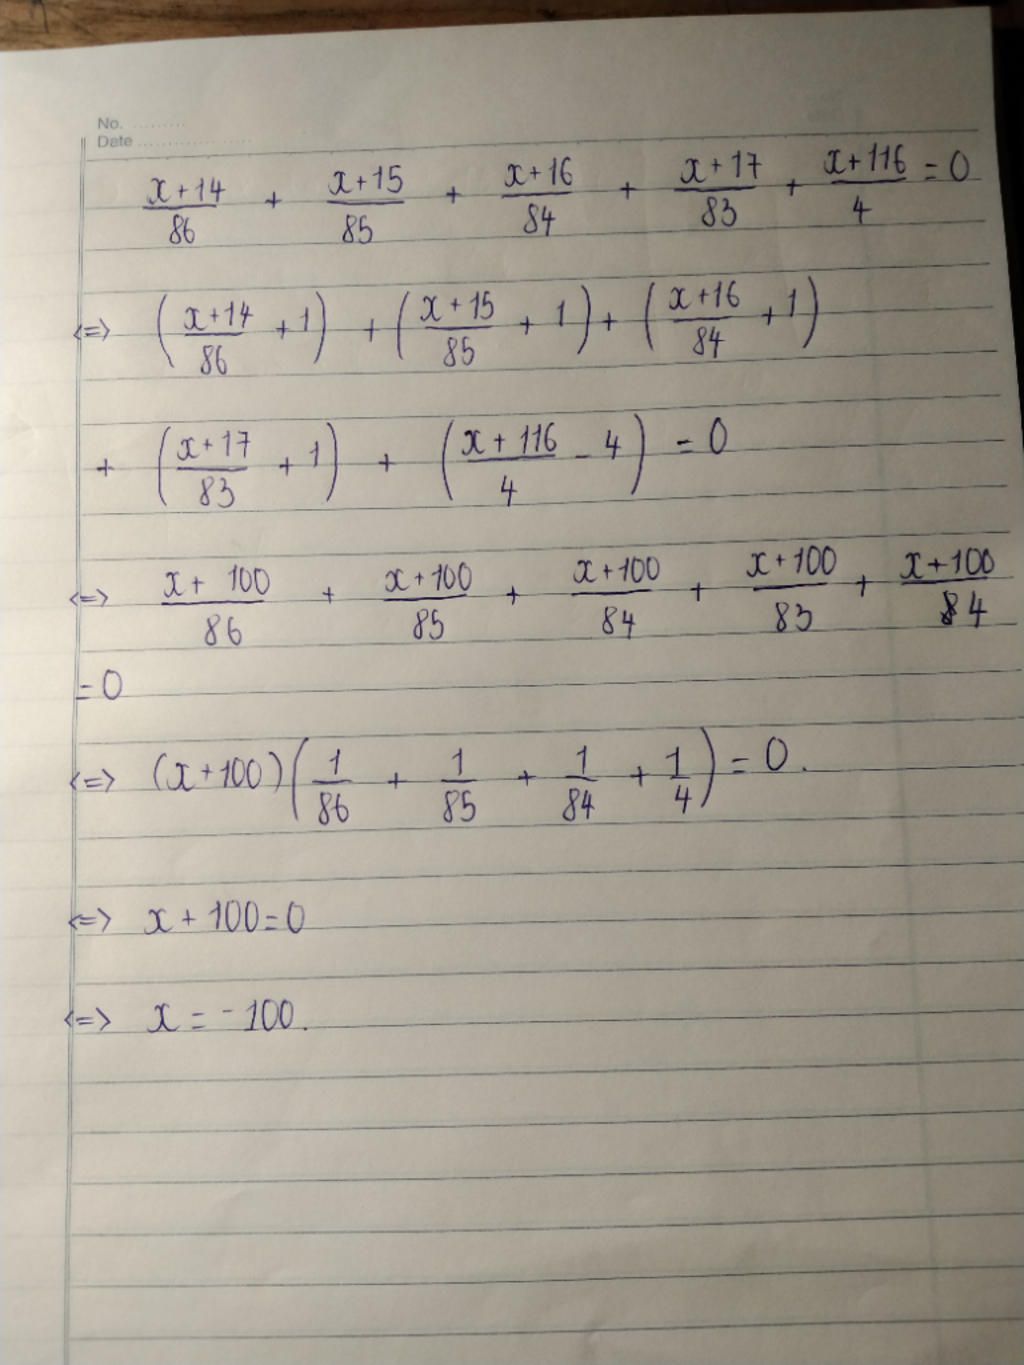 No. .........
Date ....................
\frac{x+14}{86} + \frac{x+15}{85} + \frac{x+16}{84} + \frac{x+17}{83} + \frac{x+116}{4} = 0
<=> \left(\frac{x+14}{86} + 1\right) + \left(\frac{x+15}{85} + 1\right) + \left(\frac{x+16}{84} + 1\right)
+ \left(\frac{x+17}{83} + 1\right) + \left(\frac{x+116}{4} - 4\right) = 0
<=> \frac{x+100}{86} + \frac{x+100}{85} + \frac{x+100}{84} + \frac{x+100}{83} + \frac{x+100}{4}
= 0
<=> (x+100)\left(\frac{1}{86} + \frac{1}{85} + \frac{1}{84} + \frac{1}{4}\right) = 0.
<=> x + 100 = 0
<=> x = -100.